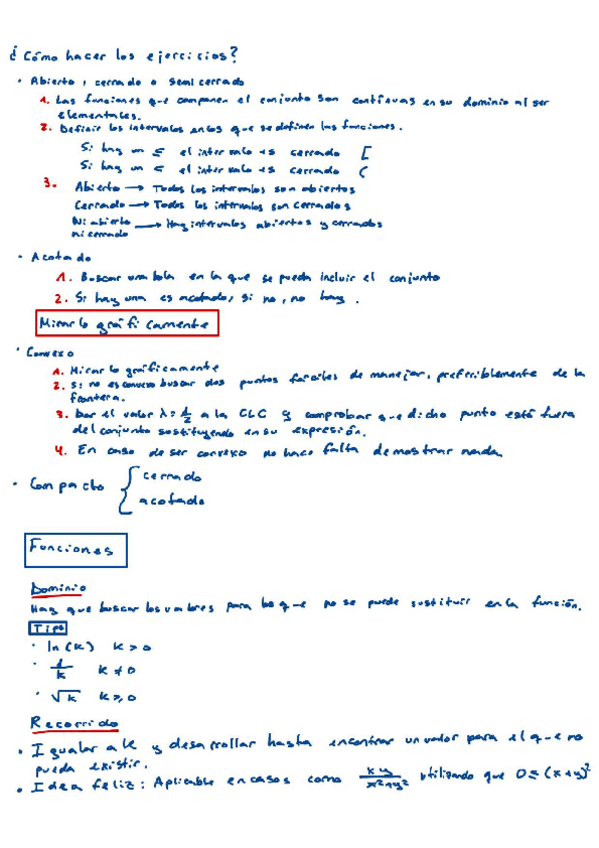 ¿Cómo hacer los ejercicios?
· Abierto, cerrado o semicerrado
1. Las funciones que componen el conjunto son continuas en su dominio al ser
elementales.
2. Definir los intervalos en los que se definen las funciones.
Si hay un ≤ el intervalo es cerrado [
Si hay un < el intervalo es cerrado (
3. Abierto → Todos los intervalos son abiertos
Cerrado → Todos los intervalos son cerrados
Ni abierto → Hay intervalos abiertos y cerrados
ni cerrado
· Acotado
1. Buscar una bola en la que se pueda incluir el conjunto
2. Si hay una es acotado, si no, no hay.
Mirarlo gráficamente
· Convexo
1. Mirarlo gráficamente
2. Si no es convexo buscar dos puntos fáciles de manejar, preferiblemente de la
frontera.
3. Dar el valor λ = 1/2 a la CLC y comprobar que dicho punto está fuera
del conjunto sustituyendo en su expresión.
4. En caso de ser convexo no hace falta demostrar nada.
· Compacto { cerrado
acotado
Funciones
Dominio
Hay que buscar los valores para los que no se puede sustituir en la función.
Tips
· ln(k) k > 0
· 1/k k ≠ 0
· √k k ≥ 0
Recorrido
· Igualar a k y desarrollar hasta encontrar un valor para el que no
pueda existir.
· Idea feliz: Aplicable en casos como xy/x²+y² utilizando que 0 ≤ (x+y)²